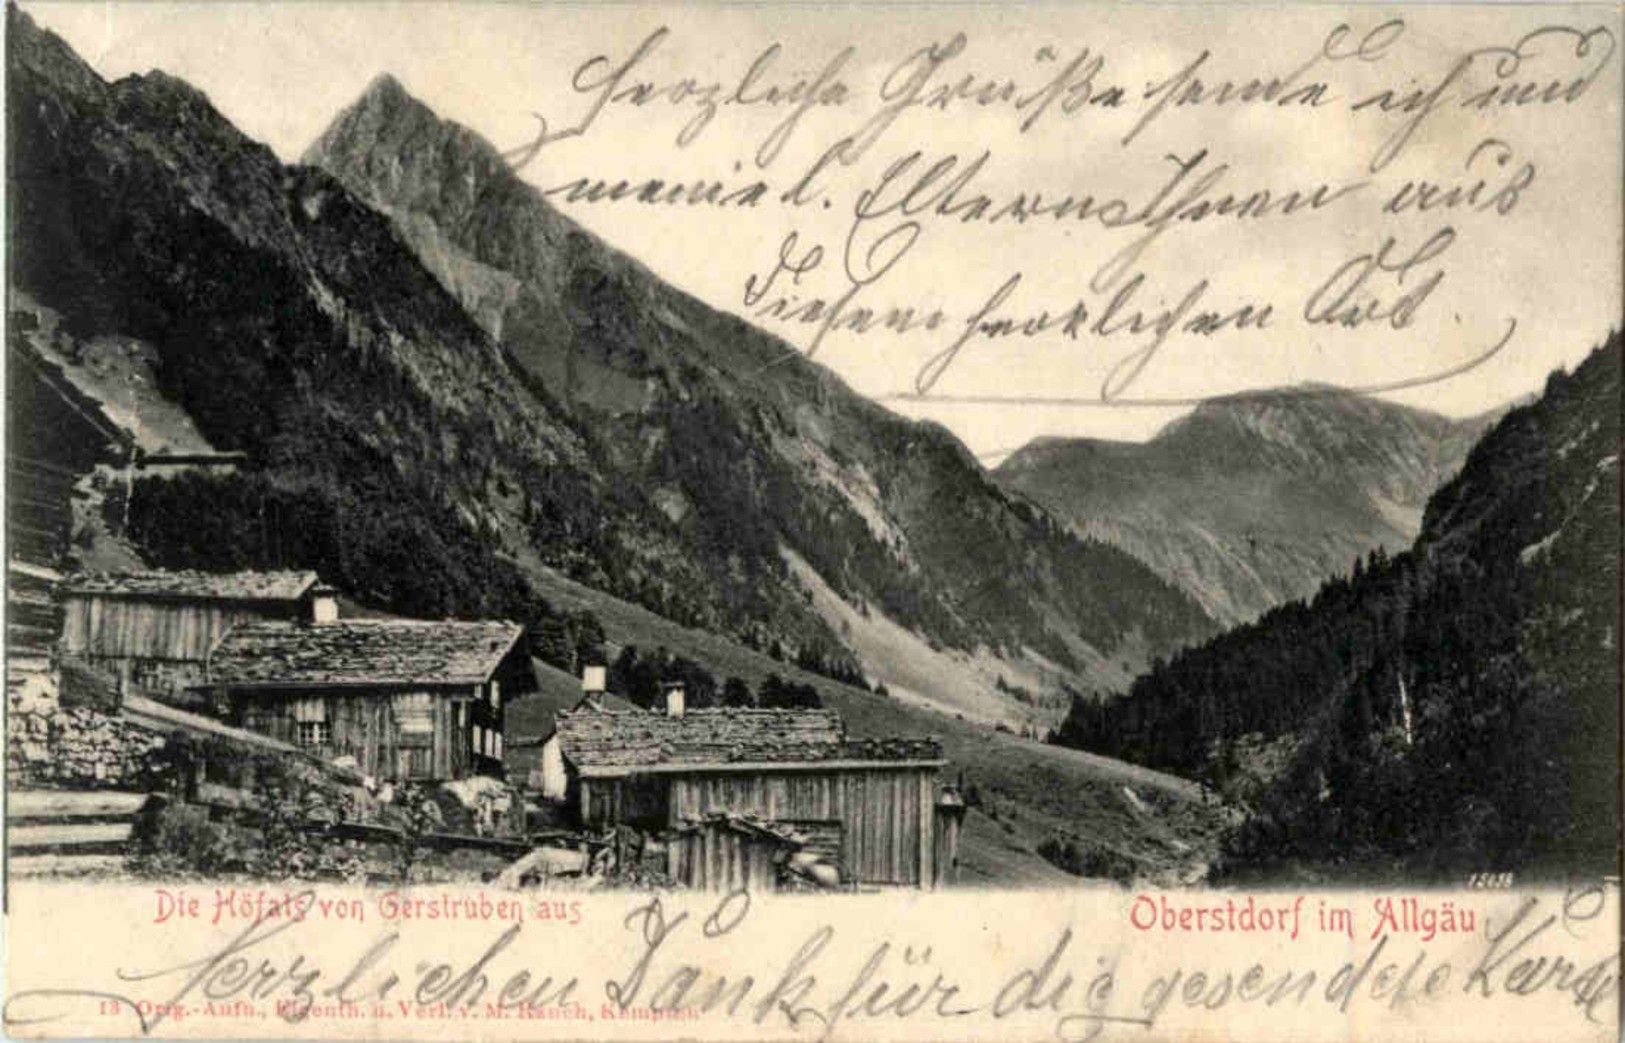 Herzliche Grüße sende ich und
meine l. Eltern Ihnen aus
diesem herrlichen Ort.
15058
Die Höfats von Gerstruben aus
Oberstdorf im Allgäu
Herzlichen Dank für die gesendete Karte
13 Orig.-Aufn., Eigenth. u. Verl. v. M. Rauch, Kempten